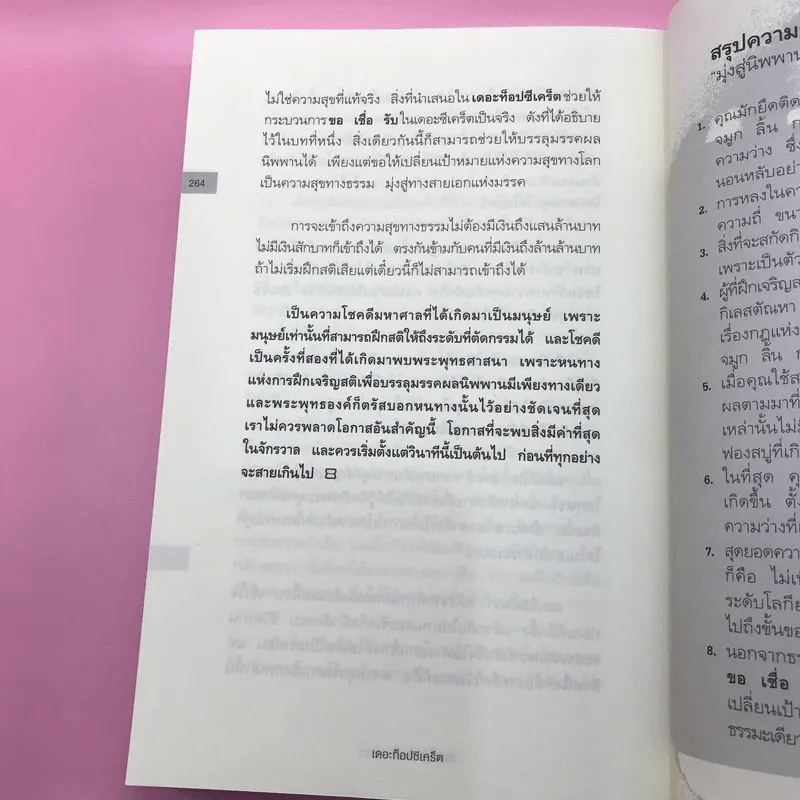 ไม่ใช่ความสุขที่แท้จริง สิ่งที่นำเสนอใน เดอะท็อปซีเคร็ต ช่วยให้
กระบวนการ ขอ เชื่อ รับ ในเดอะซีเคร็ตเป็นจริง ดังที่ได้อธิบาย
ไว้ในบทที่หนึ่ง สิ่งเดียวกันนี้ก็สามารถช่วยให้บรรลุมรรคผล
นิพพานได้ เพียงแต่ขอให้เปลี่ยนเป้าหมายแห่งความสุขทางโลก
เป็นความสุขทางธรรม มุ่งสู่ทางสายเอกแห่งมรรค
264
การจะเข้าถึงความสุขทางธรรมไม่ต้องมีเงินถึงแสนล้านบาท
ไม่มีเงินสักบาทก็เข้าถึงได้ ตรงกันข้ามกับคนที่มีเงินถึงล้านล้านบาท
ถ้าไม่เริ่มฝึกสติเสียแต่เดี๋ยวนี้ก็ไม่สามารถเข้าถึงได้
เป็นความโชคดีมหาศาลที่ได้เกิดมาเป็นมนุษย์ เพราะ
มนุษย์เท่านั้นที่สามารถฝึกสติให้ถึงระดับที่ตัดกรรมได้ และโชคดี
เป็นครั้งที่สองที่ได้เกิดมาพบพระพุทธศาสนา เพราะหนทาง
แห่งการฝึกเจริญสติเพื่อบรรลุมรรคผลนิพพานมีเพียงทางเดียว
และพระพุทธองค์ก็ตรัสบอกหนทางนั้นไว้อย่างชัดเจนที่สุด
เราไม่ควรพลาดโอกาสอันสำคัญนี้ โอกาสที่จะพบสิ่งมีค่าที่สุด
ในจักรวาล และควรเริ่มตั้งแต่วินาทีนี้เป็นต้นไป ก่อนที่ทุกอย่าง
จะสายเกินไป
เดอะท็อปซีเคร็ต
สรุปความ
"มุ่งสู่นิพพาน
1. คุณมักยึดติด
จมูก ลิ้น ก
ความว่าง ซึ่
นอนหลับอย่า
2. การหลงในคว
ความถี่ ขนา
3. สิ่งที่จะสกัดกิ
เพราะเป็นตัว
4. ผู้ที่ฝึกเจริญส
กิเลสตัณหา
เรื่องกฎแห่ง
จมูก ลิ้น ก
5. เมื่อคุณใช้ส
ผลตามมาที่
เหล่านั้นไม่มี
ฟองสบู่ที่เกิ
6. ในที่สุด คุ
เกิดขึ้น ตั้ง
ความว่างที่เ
7. สุดยอดควา
ก็คือ ไม่เ
ระดับโลกีย
ไปถึงขั้นขอ
8. นอกจากธร
ขอ เชื่อ
เปลี่ยนเป้า
ธรรมะเดีย